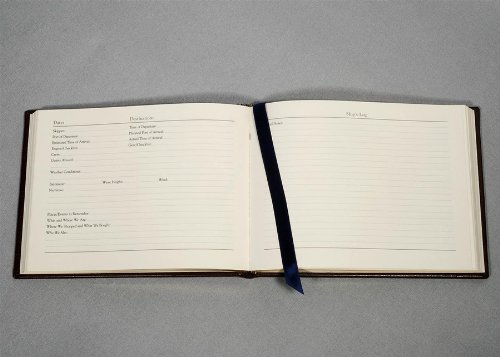 Date: Destination:
Skipper: Time of Departure:
Port of Departure: Planned Port of Arrival:
Estimated Time of Arrival: Actual Time of Arrival:
Engine Checklist:
Crew:
Guests Aboard:
Weather Conditions:
Barometer: Wave Height: Wind:
Places/Events to Remember:
What and Where We Ate:
Where We Shopped and What We Bought:
Who We Met:
Ship's Log